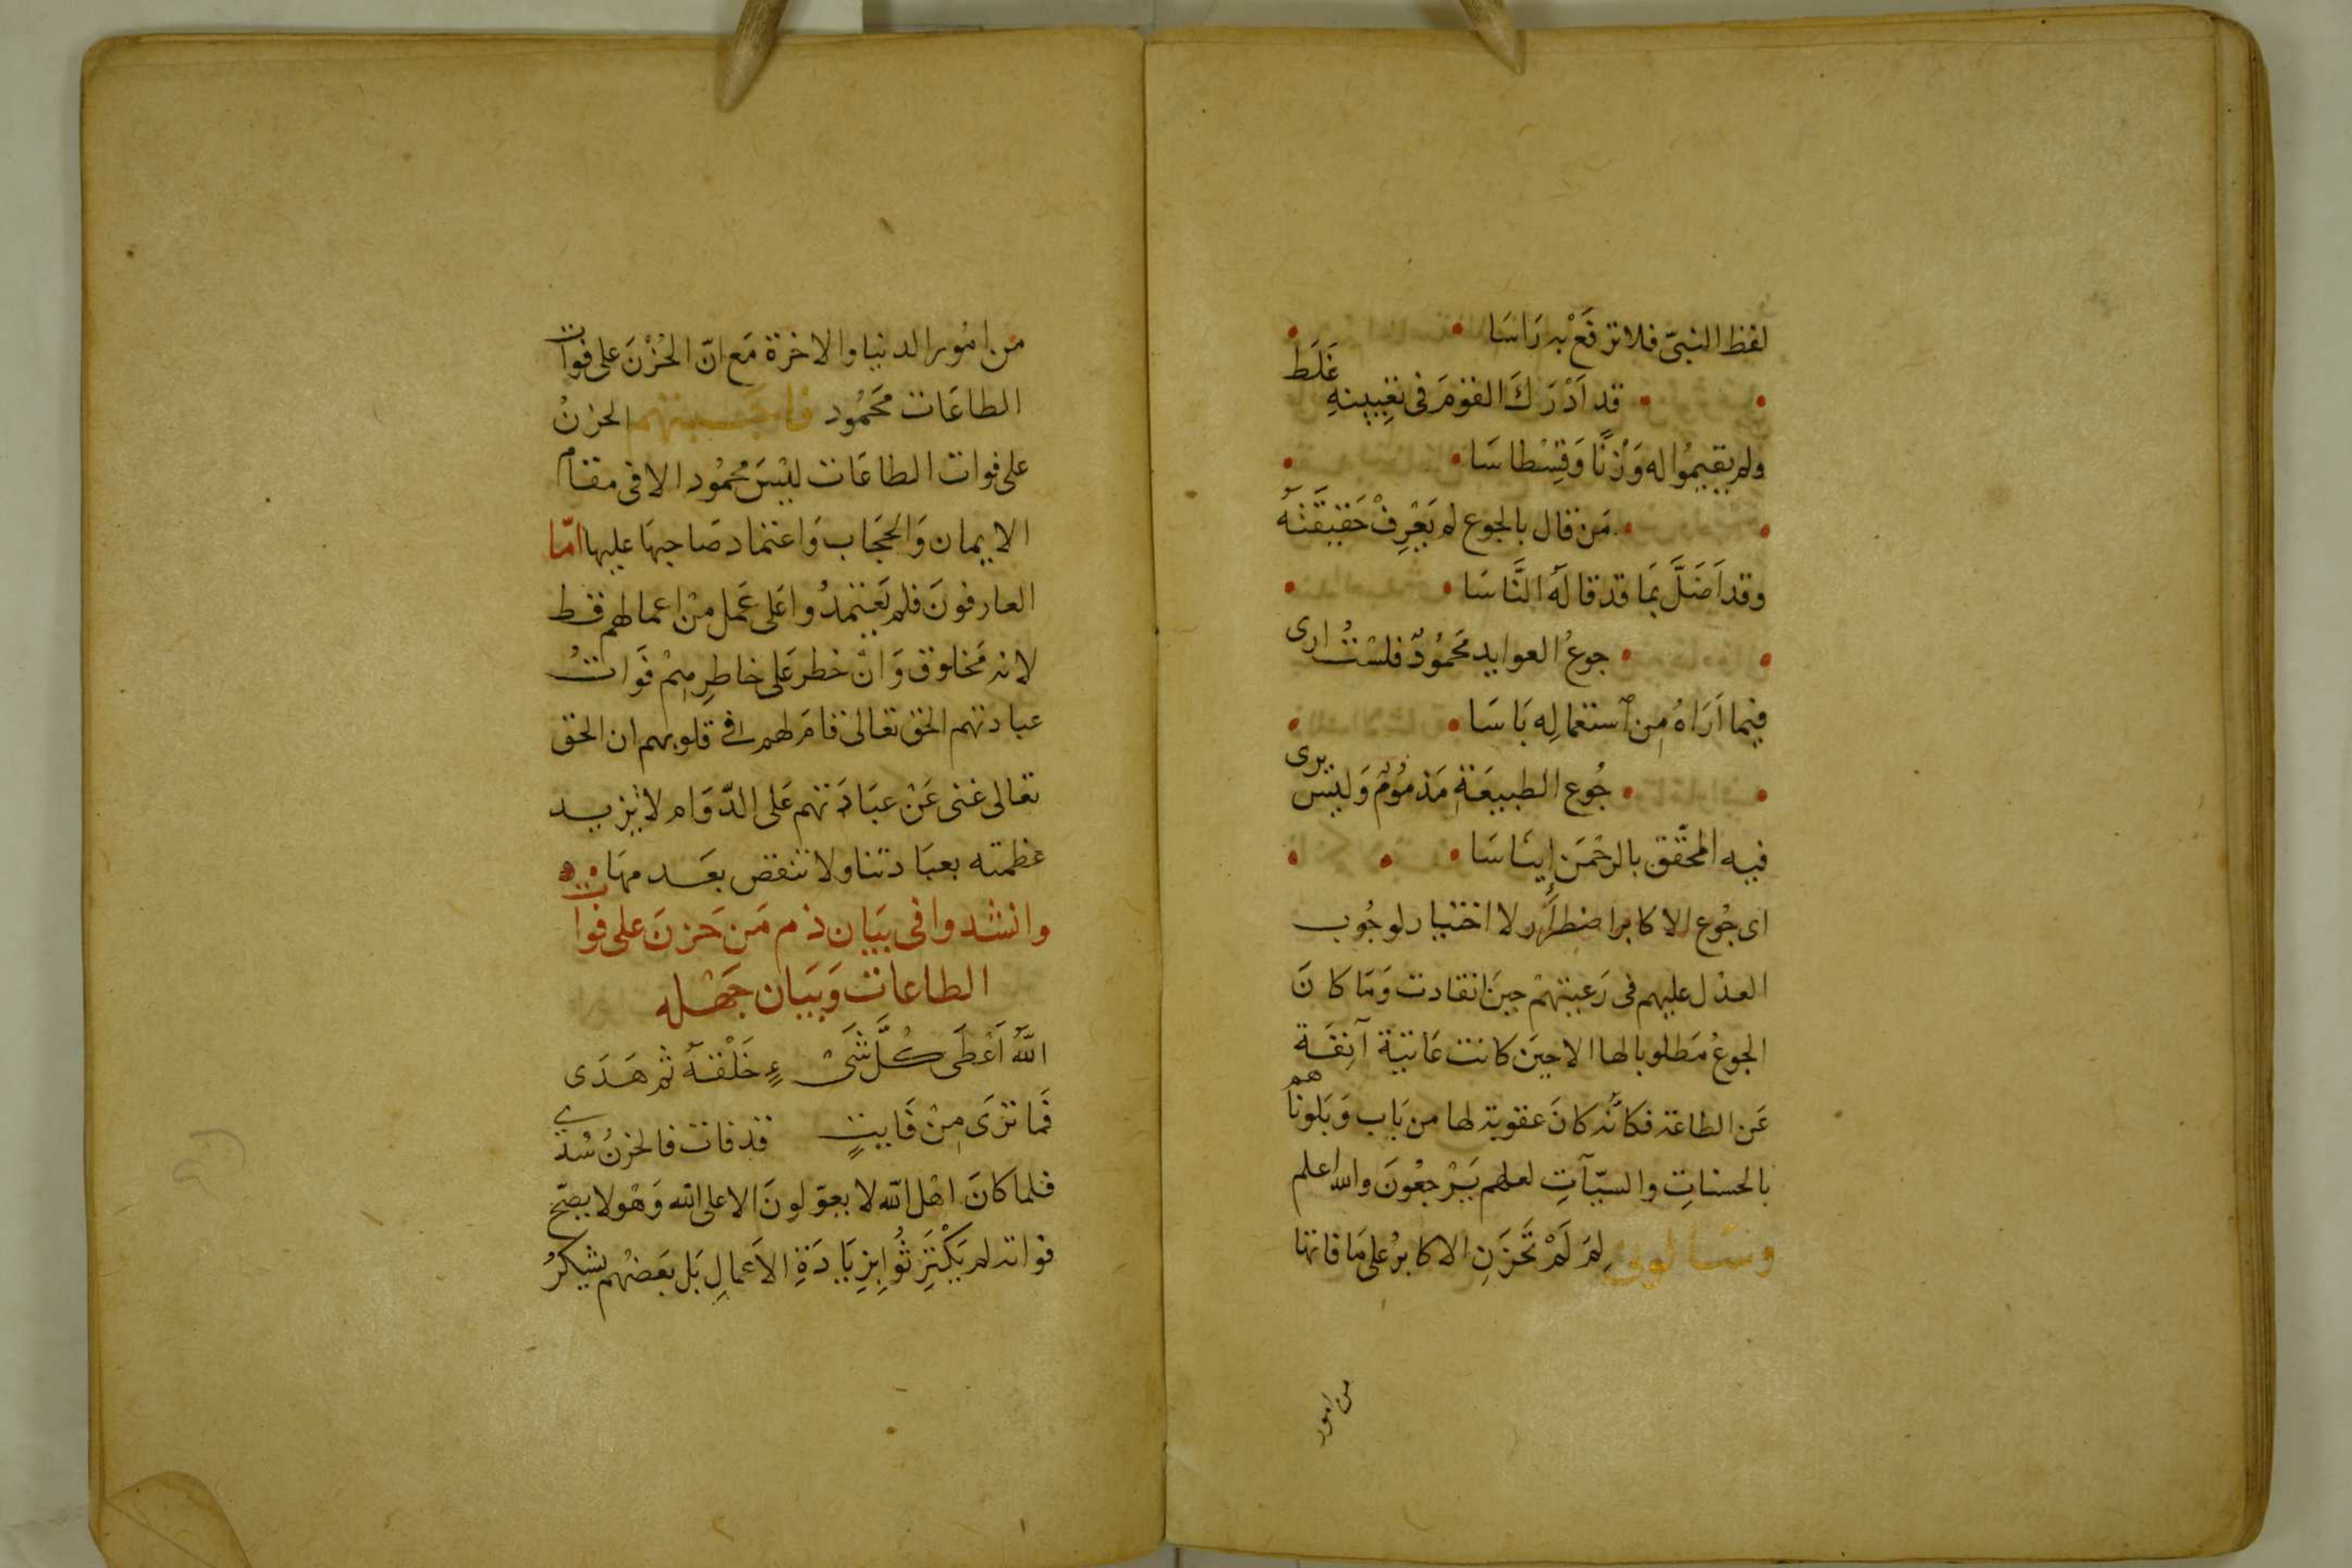 لفظ النبىّ فلا ترفَعْ به رَاسَا
قد اَدْرَكَ القومَ فى تعيينهِ غَلَط
ولم يقيمُوا له وَزْنًا وَقِسْطاسَا
مَن قال بالجوع لم يَعْرِفْ حَقيقَتَهُ
وقد اَضَلَّ بمَا قد قالَهُ النَّاسَا
جوعُ العوايد مَحمُودٌ فلسْتُ ارى
فيما اَرَاهُ مِن استعمالِه بَاسَا
جُوع الطبيعَةِ مَذمُومٌ وَليْسَ يرى
فيه المحَّقق بالرحْمَن إينَاسَا
اى جُوع الاكابر اضطرَار لا اختيار لوجُوب
العدل عليهم فى رَعيتهمْ حينَ انقادت وَمَا كانَ
الجوعُ مَطلوبا لها الا حِيَن كانت عَاتيَة آنِفَة
عَن الطاعة فكاَنّه كانَ عقوبة لها من بَاب وَبَلوناهم
بالحسناتِ والسيّآتِ لعلهم يَرْجعُونَ والله اعلم
وسَالونى لِمَ لَمْ تَحْزَنِ الاكابرُ على مَا فاتها
من امور
من امُور الدنيا والاخرة مَع انّ الحُزْنَ على فوات
الطاعَات محَمُود فاجَبتهم الحزنُ
على فوات الطاعَات ليْسَ محمُود الا فى مقام
الايمان وَالحجَاب وَاعتماد صَاحبهَا عليها امّا
العارفونَ فلم يَعتمدُوا عَلى عَمل منْ اعمالهم قط
لانه مَخلوق وَانْ خطر عَلى خاطِرِهِمْ فَوَاتُ
عبادتهم الحق تعالى قامَ لهم فى قلوبهم ان الحق
تعالى غنى عَنْ عبَادَتهم عَلى الدّوَام لا يَزيد
عظمته بعبَادتنا ولا تنقص بعَدمهَا
وانشدوا فى بيَان ذم مَن حَزنَ على فوات
الطاعات وَبيَان جَهْله
اللّهُ اَعْطَى كُلَّ شَىْءٍ خَلْقَهُ ثم هَدَى
فَما تَرَى مِنْ فَايتٍ قد فات فالحزنُ سُدى
فلما كانَ اهْل الله لا يعوّلونَ الا على الله وَهْو لا يصحّ
فواته لم يَكْتَرِثُوا بِزِيَادَةِ الاَعمالِ بَل بَعَضهُم يشكرُ